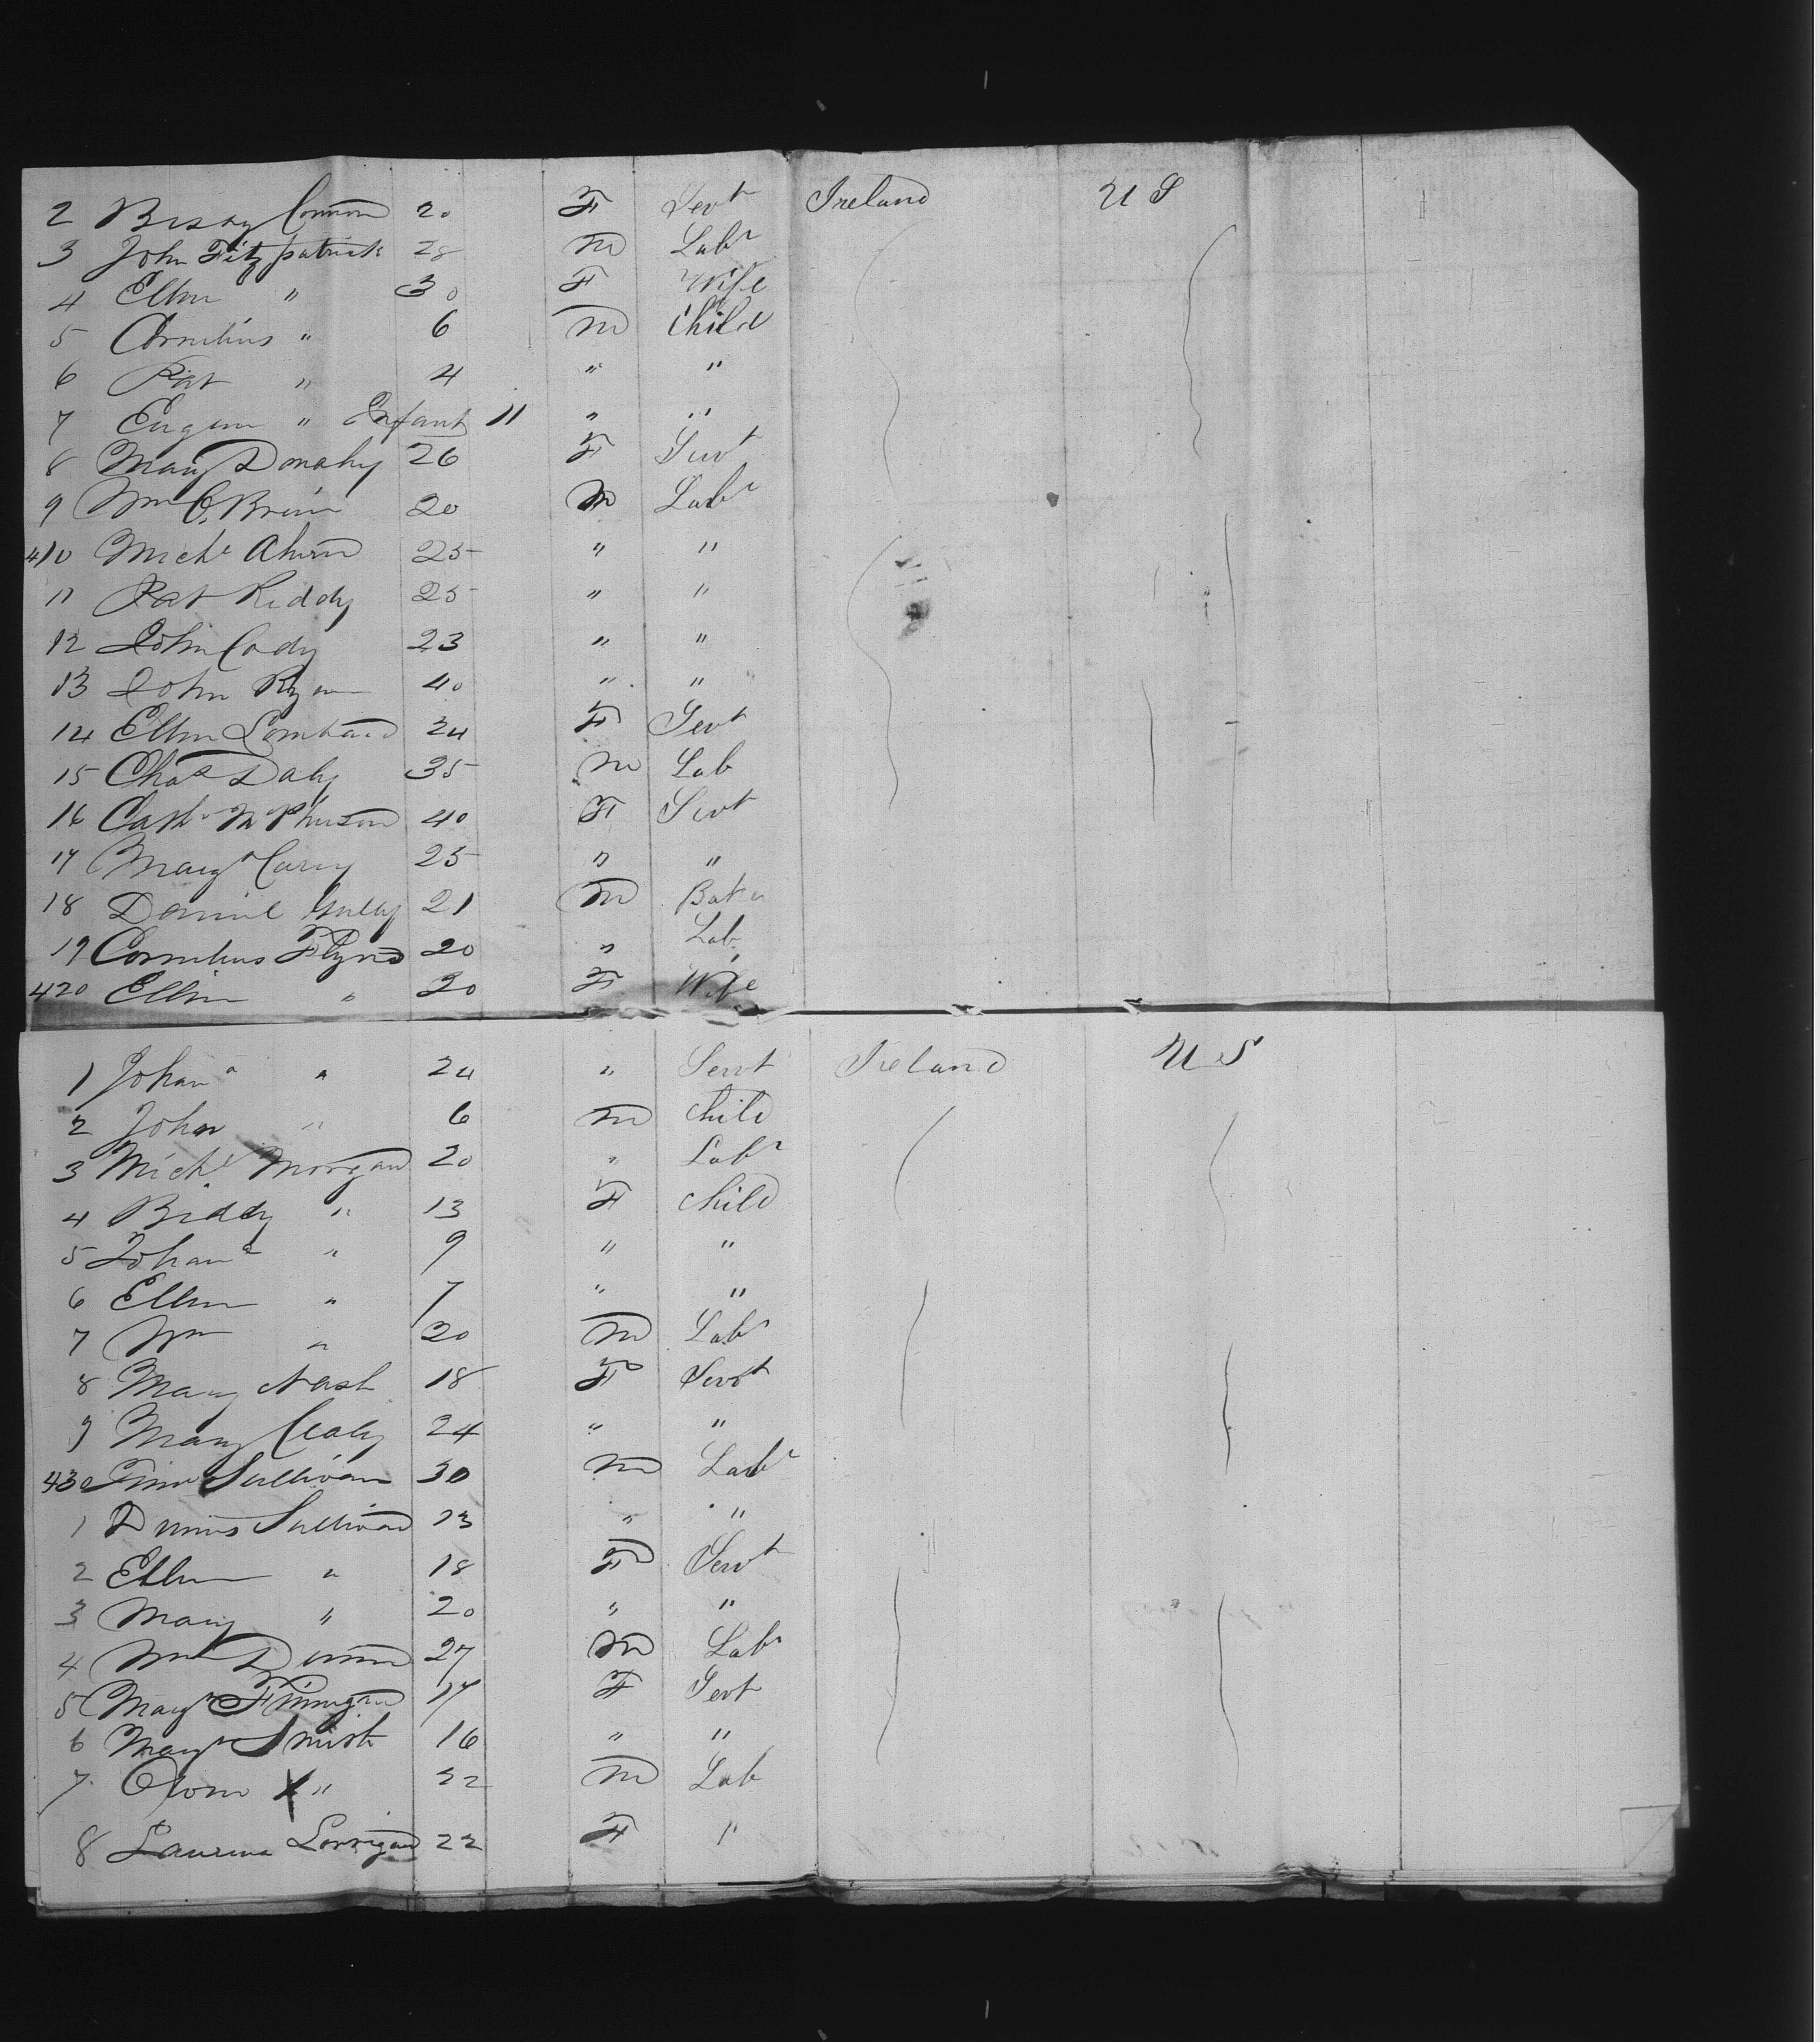 2 Bessy Connor 20 F Servt Ireland U S
3 John Fitzpatrick 28 m Labr
4 Ellen " 30 F Wife
5 Cornelius " 6 m Child
6 Pat " 4 " "
7 Eugene " Infant 11 " "
8 Mary Donahy 26 F Servt
9 Wm O,Brien 20 m Labr
410 Michl Ahern 25 " "
11 Pat Kiddy 25 " "
12 John Cody 23 " "
13 John Ryan 40 " "
14 Ellen Lombard 24 F Servt
15 Chas Daly 35 m Lab
16 Cathe McPherson 40 F Servt
17 Margt Carey 25 " "
18 Daniel 21 m Baker
19 Cornelius Flynn 20 " Lab
420 Ellen " 20 F Wife
1 Johana " 24 " Servt Ireland U S
2 John " 6 m Child
3 Michl Morgan 20 " Labr
4 Biddy " 13 F Child
5 Johana " 9 " "
6 Ellen " 7 " "
7 Wm " 20 m Labr
8 Mary Nash 18 F Servt
9 Mary 24 " "
430 Timo Sullivan 30 m Labr
1 Dennis Sullivan 23 " "
2 Ellen " 18 F Servt
3 Mary " 20 " "
4 Wm 27 m Labr
5 Margt Finnigan 17 F Servt
6 Margt Smith 16 " "
7 Owen X " 22 m Lab
8 22 F "